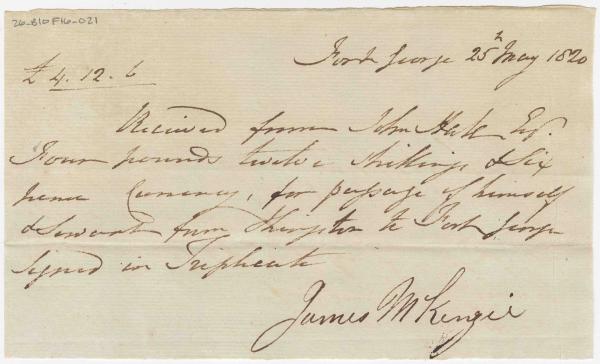 26-B10 F16-021
Fort George 25th May 1820
£ 4.12.6
Received from John Hale Esqr.
Four pounds twelve Shillings & Six
pence Currency, for passage of himself
& Servant from Kingston to Fort George
signed in Triplicate
James McKenzie